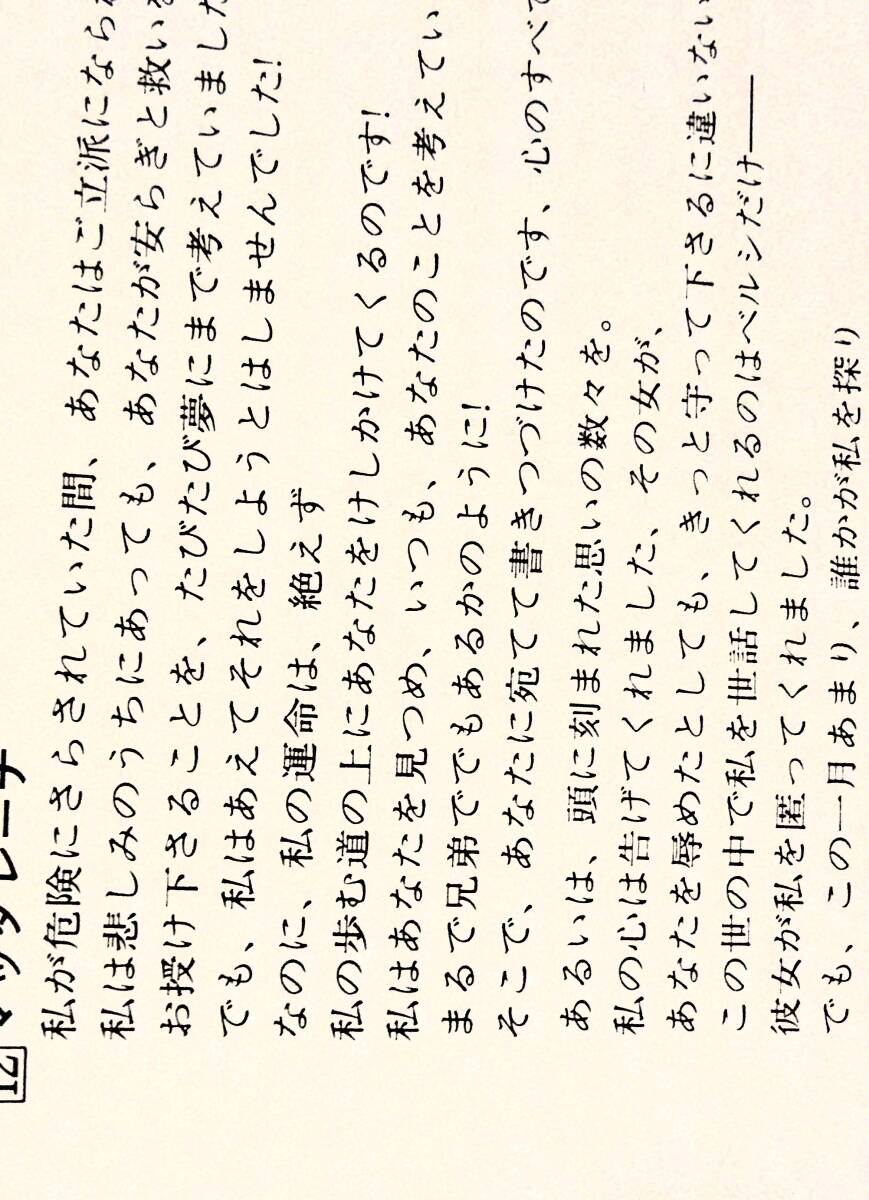 12 マッダレーナ
私が危険にさらされていた間、あなたはご立派になら
私は悲しみのうちにあっても、あなたが安らぎと救い
お授け下さることを、たびたび夢にまで考えていました
でも、私はあえてそれをしようとはしませんでした!
なのに、私の運命は、絶えず
私の歩む道の上にあなたをけしかけてくるのです!
私はあなたを見つめ、いつも、あなたのことを考えてい
まるで兄弟ででもあるかのように!
そこで、あなたに宛てて書きつづけたのです、心のすべて
あるいは、頭に刻まれた思いの数々を。
私の心は告げてくれました、その女が、
あなたを辱めたとしても、きっと守って下さるに違いない
この世の中で私を世話してくれるのはベルシだけ――
彼女が私を匿ってくれました。
でも、この一月あまり、誰かが私を探り